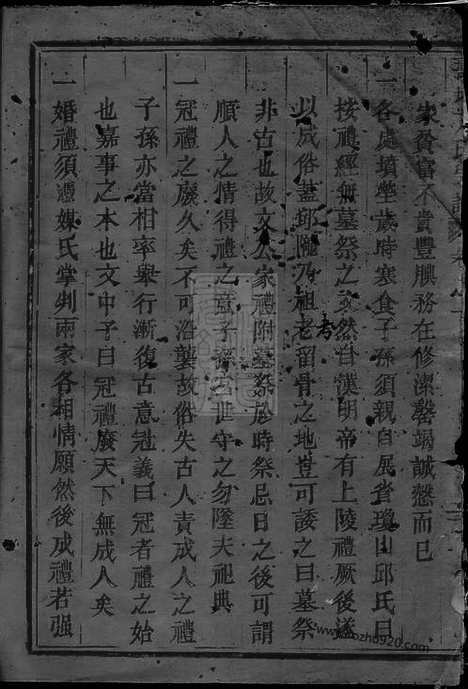 家貧富不貴豐腆務在修潔罄竭誠懇而已
一各處墳塋歲時寒食子孫須親自展省瓊山邱氏曰
按禮經無墓祭之文然自漢明帝有上陵禮厥後遂
以成俗蓋邱隴乃祖考老留骨之地豈可諉之曰墓祭
非古也故文公家禮附墓祭於時祭忌日之後可謂
順人之情得禮之意子孫世守之勿墜夫祀典
一冠禮之廢久矣不可沿襲故俗失古人責成人之禮
子孫亦當相率舉行漸復古意冠義曰冠者禮之始
也嘉事之本也文中子曰冠禮廢天下無成人矣
一婚禮須憑媒氏掌判兩家各相情願然後成禮若强